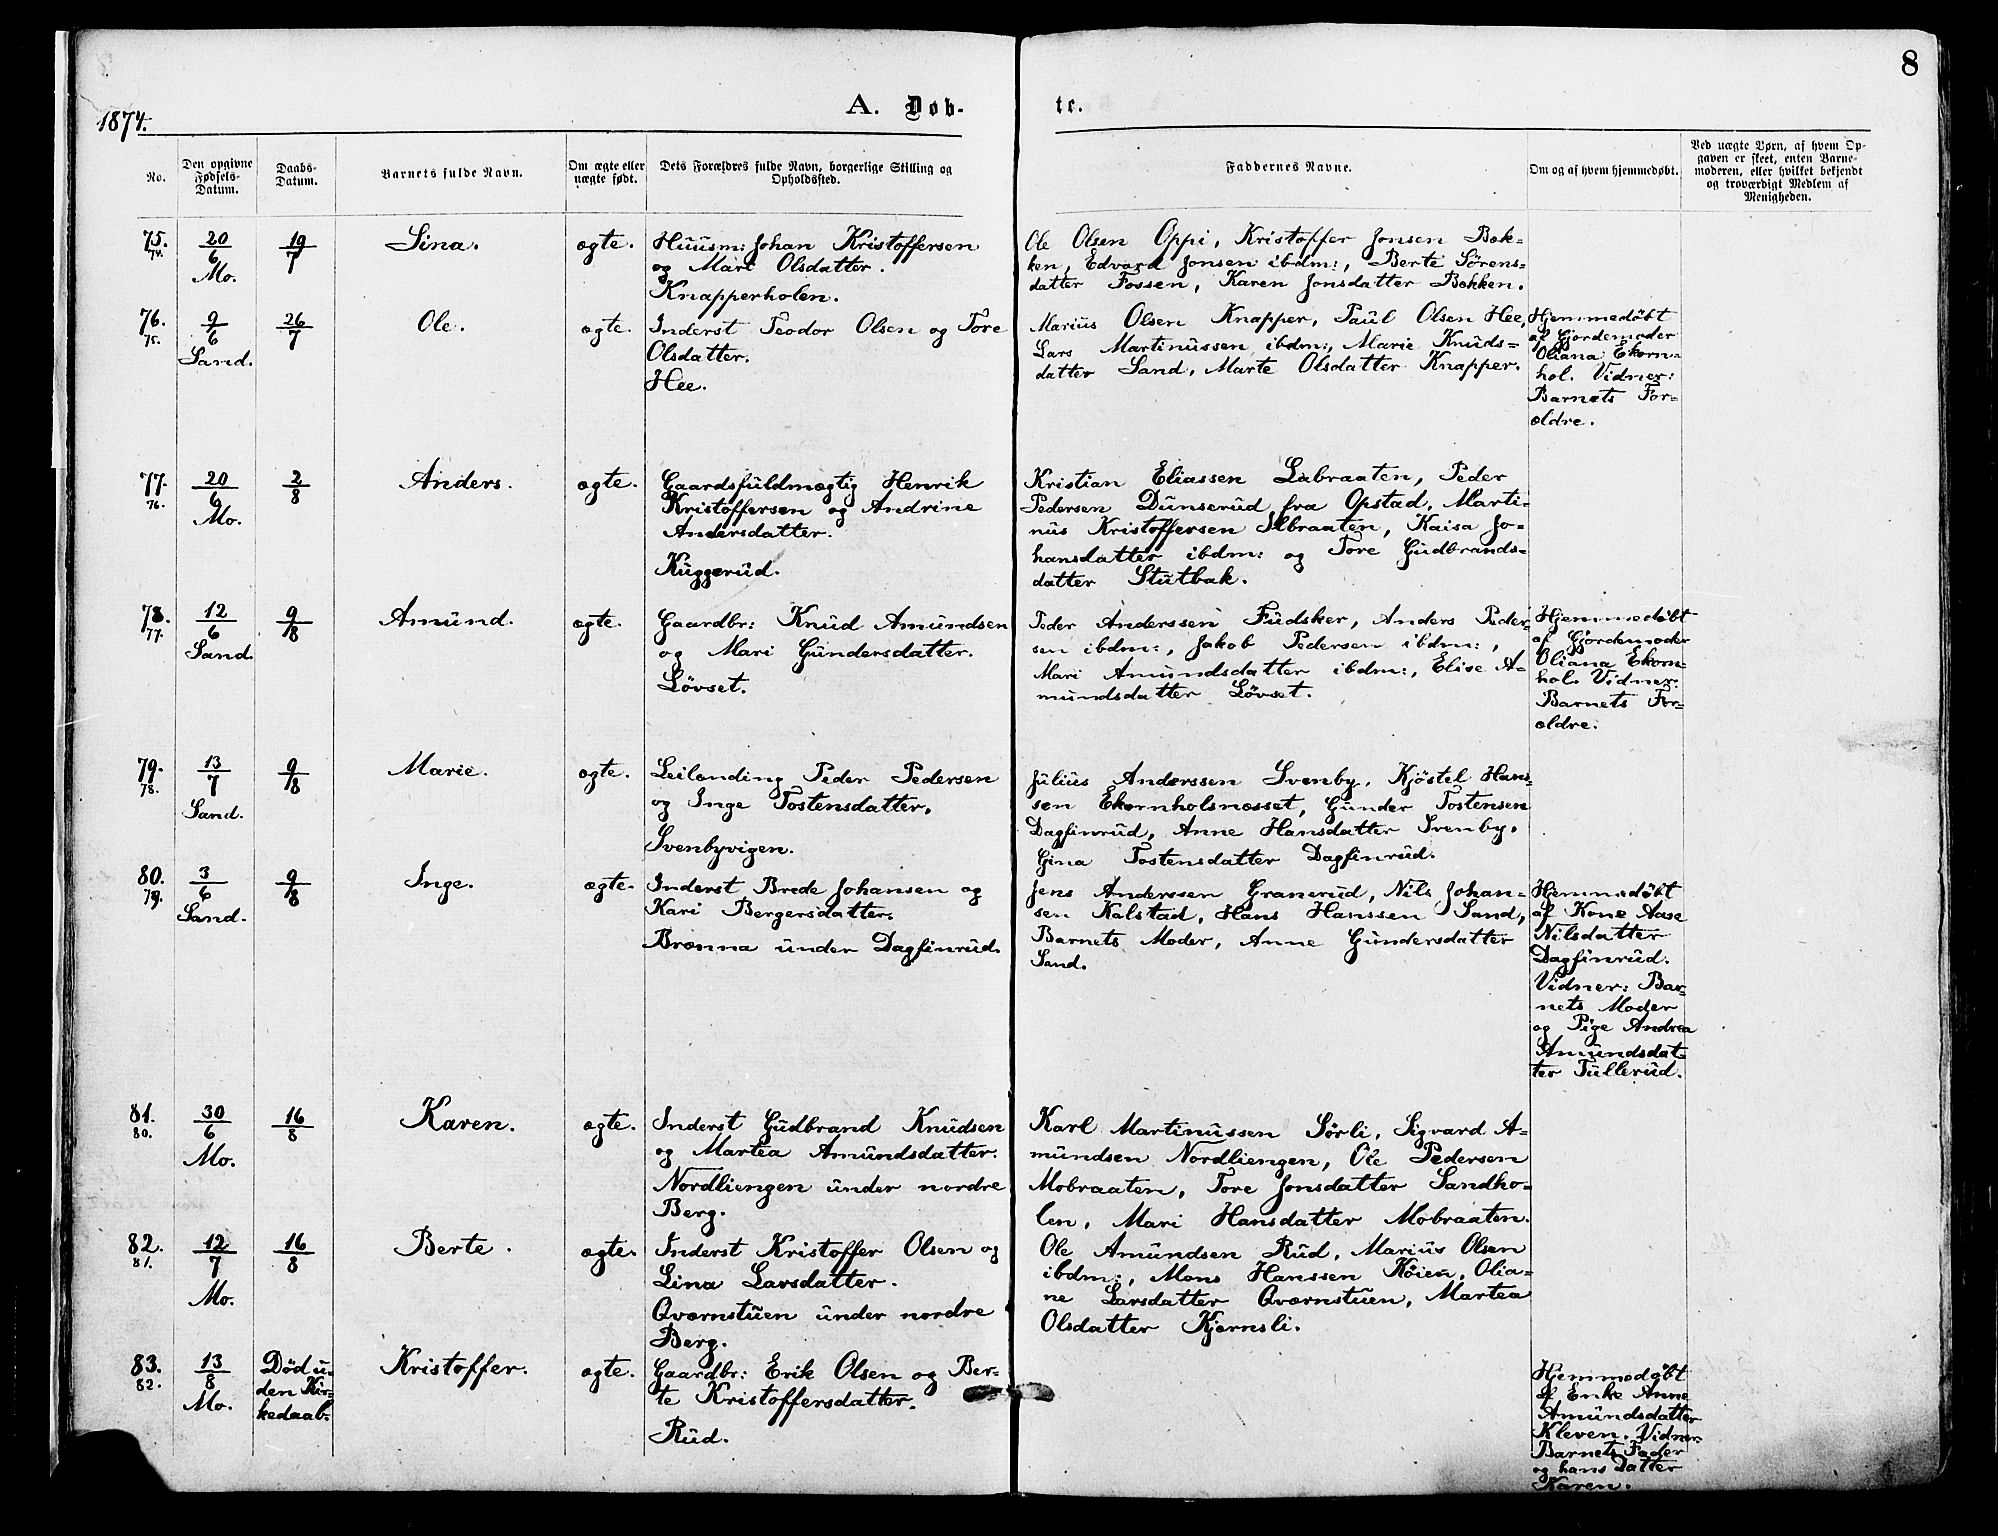 8
1874.
A. Døb-
te.
No.
Den opgivne
Fødsels-
Datum.
Daabs-
Datum.
Barnets fulde Navn.
Om ægte eller
uægte født.
Dets Forældres fulde Navn, borgerlige Stilling og
Opholdssted.
Faddernes Navne.
Om og af hvem hjemmedøbt.
Ved uægte Børn, af hvem Op-
gaven er skeet, enten Barne-
moderen, eller hvilket bekjendt
og troværdigt Medlem af
Menigheden.
75.
74.
20/6
Mo.
19/7
Sina.
ægte.
Huusm: Johan Kristoffersen
og Mari Olsdatter.
Knapperholen.
Ole Olsen Oppi, Kristoffer Jonsen Bæk-
ken, Edvard Jonsen ibdm:, Berte Sørens-
datter Fossen, Karen Jonsdatter Bækken.
76.
75.
9/6
Sand.
26/7
Ole.
ægte.
Inderst Teodor Olsen og Tore
Olsdatter.
Hee.
Marius Olsen Knapper, Paul Olsen Hee,
Lars Martinussen ibdm:, Marie Knuds-
datter Sand, Marte Olsdatter Knapper.
Hjemmedøbt
af Gjordemoder
Oliana Ekorn-
hol. Vidner:
Barnets For-
ældre.
77.
76.
20/6
Mo.
2/8
Anders.
ægte.
Gaardsfuldmægtig Henrik
Kristoffersen og Andrine
Andersdatter.
Kuggerud.
Kristian Eliassen Labraaten, Peder
Pedersen Dunserud fra Opstad, Marti-
nus Kristoffersen Albraaten, Kaisa Jo-
hansdatter ibdm: og Tore Gudbrands-
datter Stutbak.
78.
77.
12/6
Sand.
9/8
Amund.
ægte.
Gaardbr: Knud Amundsen
og Mari Gundersdatter.
Løvset.
Peder Anderssen Fudsker, Anders Peder-
sen ibdm:, Jakob Pedersen ibdm:,
Mari Amundsdatter ibdm:, Elise A-
mundsdatter Løvset.
Hjemmedøbt
af Gjordemoder
Oliana Ekorn-
hol. Vidner:
Barnets For-
ældre.
79.
78.
13/7
Sand.
9/8
Marie.
ægte.
Leilending Peder Pedersen
og Inge Tostensdatter.
Svenbyvigen.
Julius Anderssen Svenby, Kjøstel Hans-
sen Ekornholsnæsset, Gunder Tostensen
Dagfinrud, Anne Hansdatter Svenby.
Gina Tostensdatter Dagfinrud.
80.
79.
3/6
Sand.
9/8
Inge.
ægte.
Inderst Brede Johansen og
Kari Bergersdatter.
Brænna under Dagfinrud.
Jens Anderssen Granerud, Nils Johan-
sen Kalstad, Hans Hanssen Sand,
Barnets Moder, Anne Gundersdatter
Sand.
Hjemmedøbt
af Kone Aase
Nilsdatter
Dagfinrud.
Vidner: Bar-
nets Moder
og Pige Andrea
Amundsdat-
ter Tullerud.
81.
80.
30/6
Mo.
16/8
Karen.
ægte.
Inderst Gudbrand Knudsen
og Martea Amundsdatter.
Nordliengen under nordre
Berg.
Karl Martinussen Sørli, Sigvard A-
mundsen Nordliengen, Ole Pedersen
Mobraaten, Tore Jonsdatter Sandho-
len, Mari Hansdatter Mobraaten.
82.
81.
12/7
Mo.
16/8
Berte.
ægte.
Inderst Kristoffer Olsen og
Lina Larsdatter.
Qværnstuen under nordre
Berg.
Ole Amundsen Rud, Marius Olsen
ibdm:, Mons Hanssen Køien, Olia-
ne Larsdatter Qværnstuen, Martea
Olsdatter Kjernsli.
83.
82.
13/8
Mo.
Død u-
den Kir-
kedaab.
Kristoffer.
ægte.
Gaardbr: Erik Olsen og Ber-
te Kristoffersdatter.
Rud.
Hjemmedøbt
af Enke Anne
Amundsdatter
Kleven. Vidner:
Barnets Fader
og hans Datter
Karen.